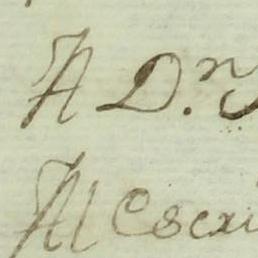 A D.n
Al Escri